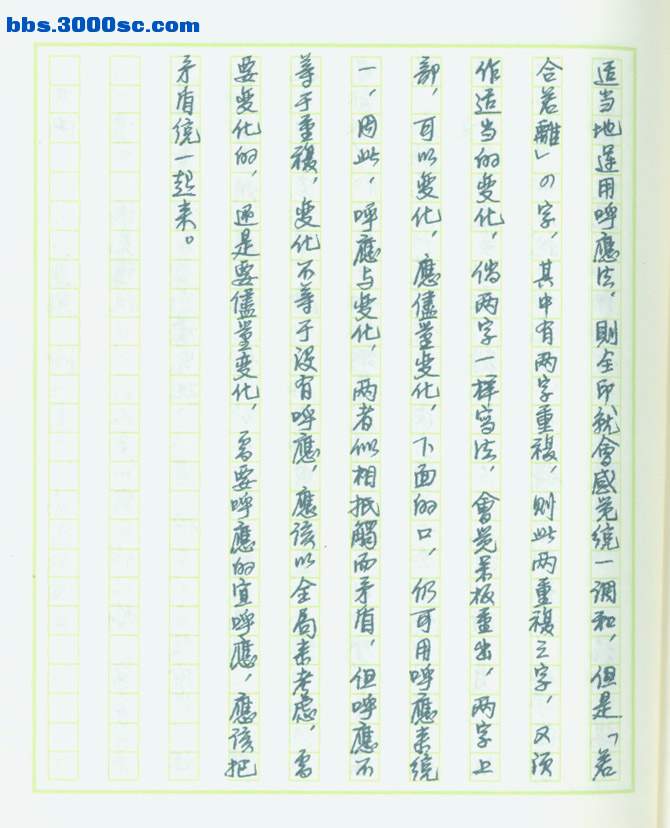 bbs.3000sc.com
适当地运用呼應法，則全印就會感觉统一调和，但是「若
合若離」の字，其中有两字重複，则此两重複之字，又须
作适当的变化，倘两字一样写法，會觉呆板重出，两字上
部，可以变化，應儘量变化，下面的口，仍可用呼應来统
一，因此，呼應与变化，两者似相抵觸而矛盾，但呼應不
等于重複，变化不等于没有呼應，應该以全局来考虑，需
要变化的，还是要儘量变化，需要呼應的宜呼應，應该把
矛盾统一起来。